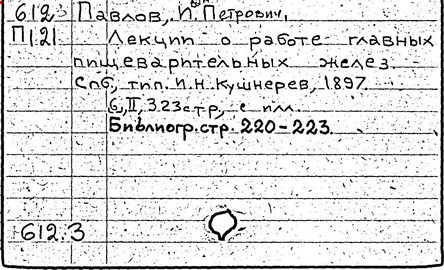 612 Павлов, И. Петрович,
П121 Лекции о работе главных
пищеварительных желез.
Спб, тип. И.Н.Кушнерев, 1897.
6,II,323стр, с илл.
Библиогр.стр. 220-223.
612.3